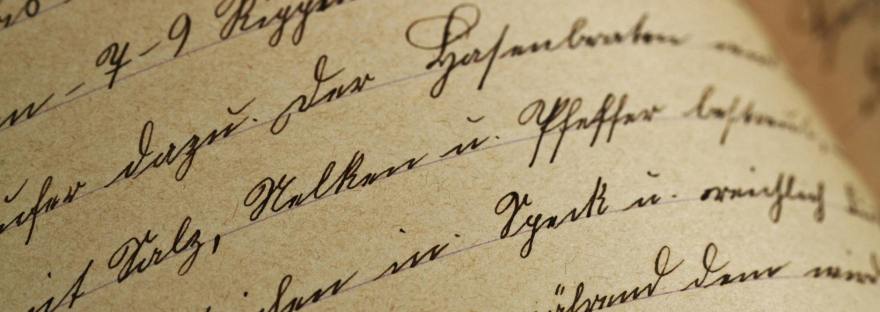 7-9 Rippen
dazu. Der Hasenbraten
mit Salz, Nelken u. Pfeffer bestreut,
in Speck u. reichlich
während dem wird